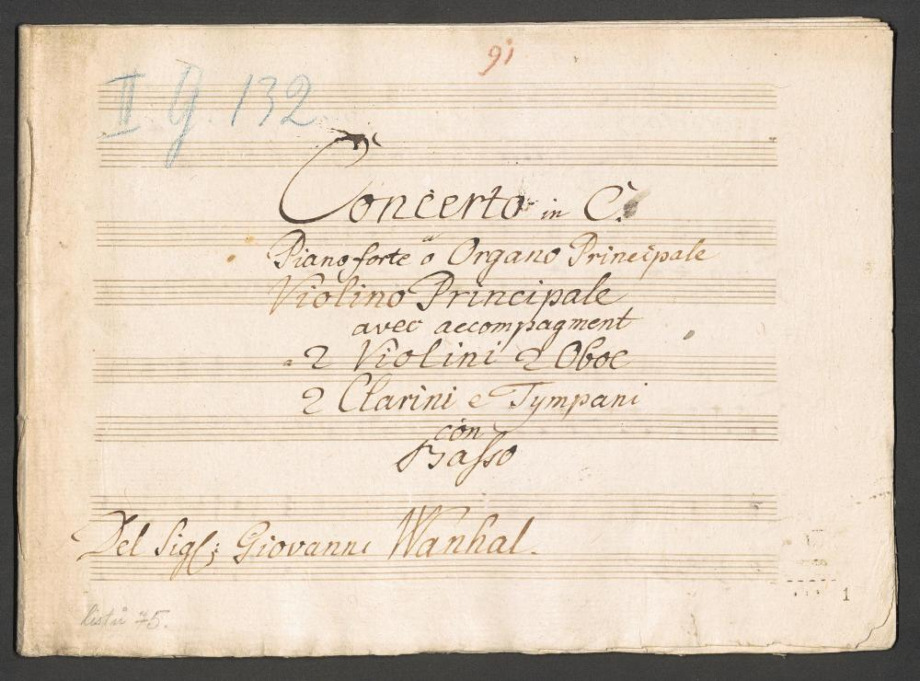 91
II G. 132
Concerto in C.
Pianoforte o Organo Principale
Violino Principale
avec accompagment
2 Violini 2 Oboe
2 Clarini e Tympani
con
Basso
Del Sigl: Giovanni Wanhal.
listů 75.
1